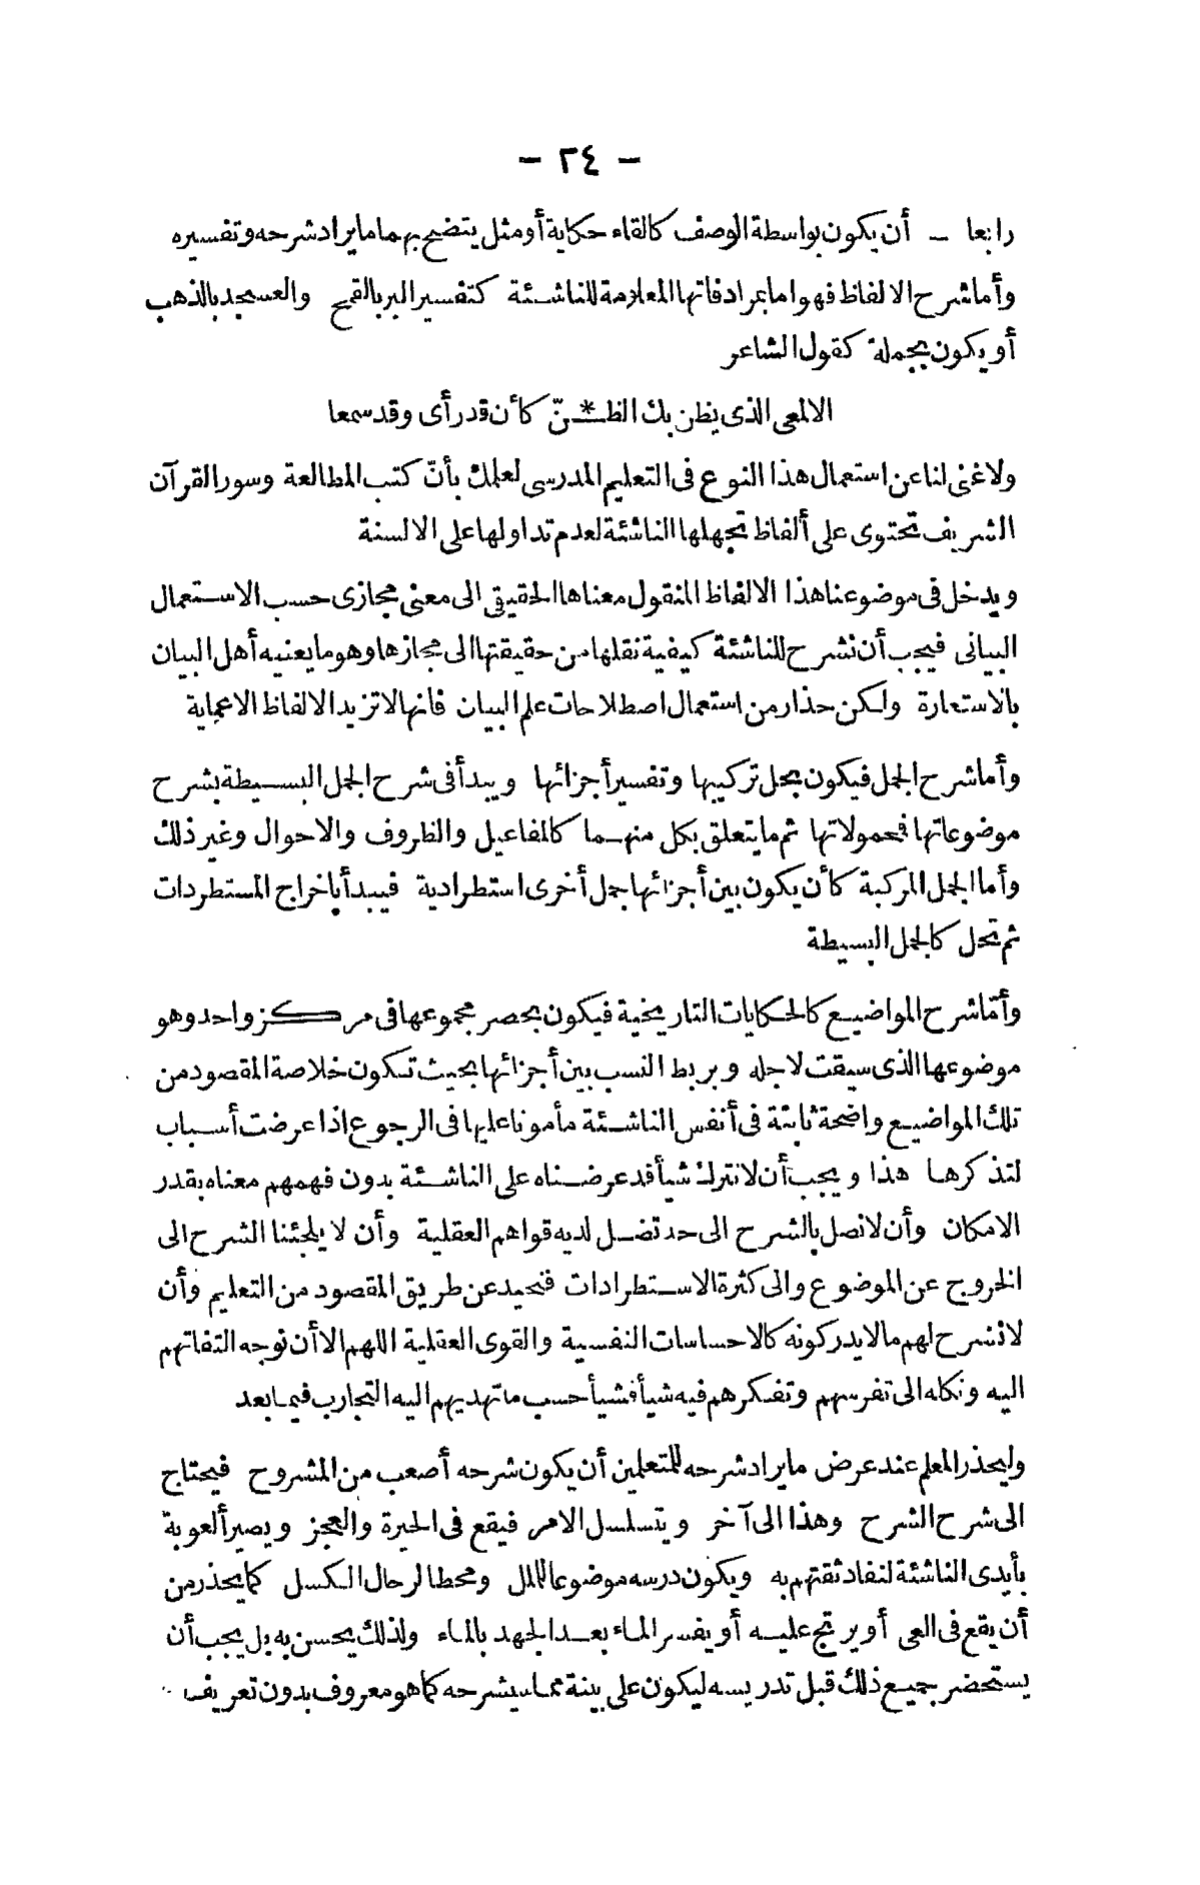 - ٢٤ -
رابعا - أن يكون بواسطة الوصف كالقاء حكاية أو مثل يتضح بهما ما يراد شرحه وتفسيره
وأما شرح الالفاظ فهو اما بمرادفاتها المعلومة للناشئة كتفسير البر بالقمح والعسجد بالذهب
أو يكون بجملة كقول الشاعر
الالمعى الذى يظن بك الظـ * ـنّ كأن قد رأى وقد سمعا
ولا غنى لنا عن استعمال هذا النوع فى التعليم المدرسى لعلمك بأنّ كتب المطالعة وسور القرآن
الشريف تحتوى على ألفاظ تجهلها الناشئة لعدم تداولها على الالسنة
ويدخل فى موضوعنا هذا الالفاظ المنقول معناها الحقيقى الى معنى مجازى حسب الاستعمال
البيانى فيجب أن نشرح للناشئة كيفية نقلها من حقيقتها الى مجازها وهو ما يعنيه أهل البيان
بالاستعارة ولكن حذار من استعمال اصطلاحات علم البيان فانها لا تزيد الالفاظ الاعماية
وأما شرح الجمل فيكون بحل تركيبها وتفسير أجزائها ويبدأ فى شرح الجمل البسيطة بشرح
موضوعاتها فمحمولاتها ثم ما يتعلق بكل منهما كالمفاعيل والظروف والاحوال وغير ذلك
وأما الجمل المركبة كأن يكون بين أجزائها جمل أخرى استطرادية فيبدأ باخراج المستطردات
ثم تحل كالجمل البسيطة
وأمّا شرح المواضيع كالحكايات التاريخية فيكون بحصر مجموعها فى مركز واحد وهو
موضوعها الذى سيقت لاجله وبربط النسب بين أجزائها بحيث تكون خلاصة المقصود من
تلك المواضيع واضحة ثابتة فى أنفس الناشئة مأمونا عليها فى الرجوع اذا عرضت أسباب
لتذكرها هذا ويجب أن لا نترك شيأ قد عرضناه على الناشئة بدون فهمهم معناه بقدر
الامكان وأن لا نصل بالشرح الى حد تضل لديه قواهم العقلية وأن لا يلجئنا الشرح الى
الخروج عن الموضوع والى كثرة الاستطرادات فنحيد عن طريق المقصود من التعليم وأن
لا نشرح لهم ما لا يدركونه كالاحساسات النفسية والقوى العقلية اللهم الا أن نوجه التفاتهم
اليه ونكله الى تفرسهم وتفكرهم فيه شيأ فشيأ حسب ما تهديهم اليه التجارب فيما بعد
وليحذر المعلم عند عرض ما يراد شرحه للمتعلمين أن يكون شرحه أصعب من المشروح فيحتاج
الى شرح الشرح وهذا الى آخر ويتسلسل الامر فيقع فى الحيرة والعجز ويصير ألعوبة
بأيدى الناشئة لنفاد ثقتهم به ويكون درسه موضوعا للملل ومحطا لرحال الكسل كما يحذر من
أن يقع فى العى أو يرتج عليه أو يفسر الماء بعد الجهد بالماء ولذلك يحسن به بل يجب أن
يستحضر جميع ذلك قبل تدريسه ليكون على بينة مما سيشرحه كما هو معروف بدون تعريف